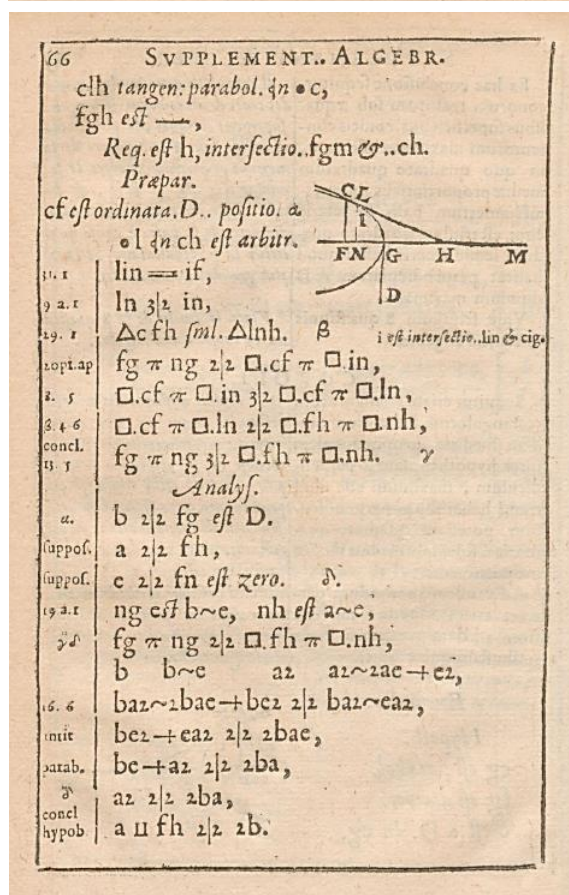 66 SVPPLEMENT.. ALGEBR.
clh tangen: parabol. in • c,
fgh est —,
Req. est h, intersectio..fgm &.. ch.
Præpar.
cf est ordinata. D.. positio. α
• l in ch est arbitr.
CL
I
FN G H M
D
31. 1 lin = if,
9 a. 1 ln 3|2 in,
29. 1 Δcfh sml. Δlnh. β
i est intersectio..lin & cig.
20pr.ap fg π ng 2|2 □.cf π □.in,
8. 5 □.cf π □.in 3|2 □.cf π □.ln,
β. 4 6 □.cf π □.ln 2|2 □.fh π □.nh,
concl.
13. 5 fg π ng 3|2 □.fh π □.nh. γ
Analys.
α. b 2|2 fg est D.
suppos. a 2|2 fh,
suppos. e 2|2 fn est zero. δ.
19 a. 1 ng est b~e, nh est a~e,
γδ fg π ng 2|2 □.fh π □.nh,
b b~e a2 a2~2ae+e2,
16. 6 ba2~2bae+be2 2|2 ba2~ea2,
be2+ea2 2|2 2bae,
parab. be+a2 2|2 2ba,
δ a2 2|2 2ba,
concl
hypob a ⊔ fh 2|2 2b.